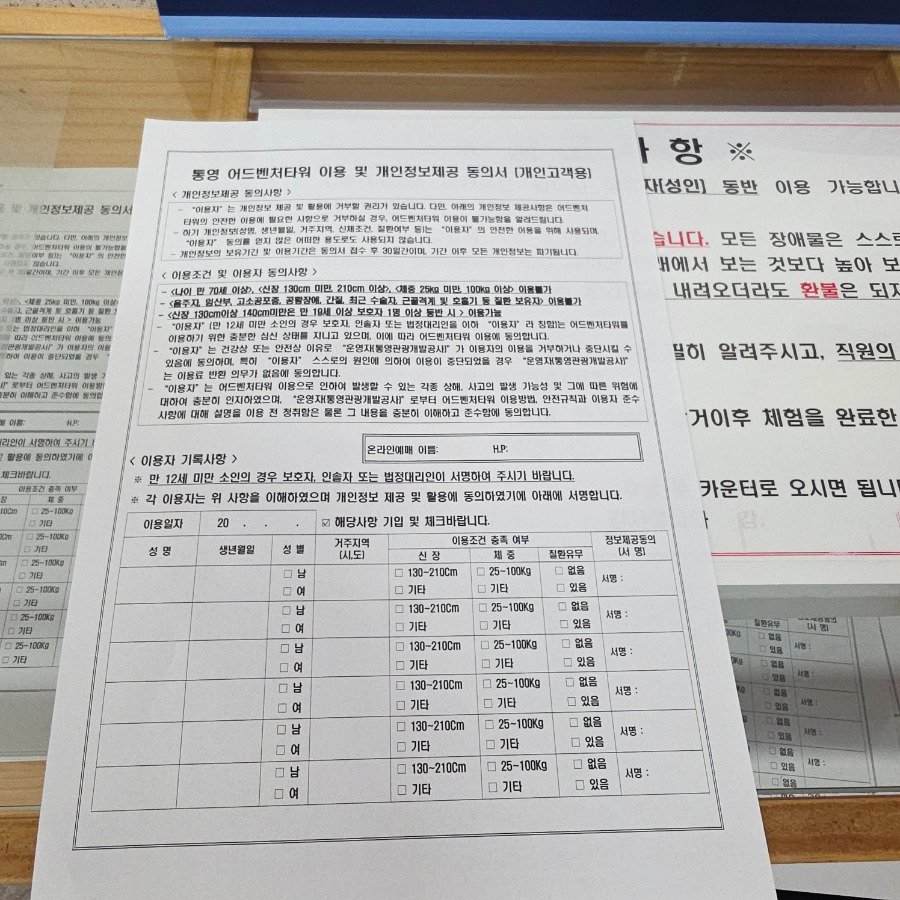 통영 어드벤처타워 이용 및 개인정보제공 동의서 [개인고객용]
< 개인정보제공 동의사항 >
- "이용자"는 개인정보 제공 및 활용에 거부할 권리가 있습니다. 다만, 아래의 개인정보 제공사항은 어드벤처
타워의 안전한 이용에 필요한 사항으로 거부하실 경우, 어드벤처타워 이용이 불가능함을 알려드립니다.
- 하기 개인정보(성명, 생년월일, 거주지역, 신체조건, 질환여부 등)는 "이용자"의 안전한 이용을 위해 사용되며,
"이용자" 동의를 얻지 않은 어떠한 용도로도 사용되지 않습니다.
- 개인정보의 보유기간 및 이용기간은 동의서 접수 후 30일간이며, 기간 이후 모든 개인정보는 파기됩니다.
< 이용조건 및 이용자 동의사항 >
- <나이 만 70세 이상>, <신장 130cm 미만, 210cm 이상>, <체중 25kg 미만, 100kg 이상> 이용불가
- <음주자, 임산부, 고소공포증, 공황장애, 간질, 최근 수술자, 근골격계 및 호흡기 등 질환 보유자> 이용불가
- <신장 130cm이상 140cm미만은 만 19세 이상 보호자 1명 이상 동반 시> 이용가능
- "이용자"(만 12세 미만 소인의 경우 보호자, 인솔자 또는 법정대리인을 이하 "이용자"라 칭함)는 어드벤처타워를
이용하기 위한 충분한 심신 상태를 지니고 있으며, 이에 따라 어드벤처타워 이용에 동의합니다.
- "이용자"는 건강상 또는 안전상 이유로 "운영자(통영관광개발공사)"가 이용자의 이용을 거부하거나 중단시킬 수
있음에 동의하며, 특히 "이용자" 스스로의 원인에 의하여 이용이 중단되었을 경우 "운영자(통영관광개발공사)"
는 이용료 반환 의무가 없음에 동의합니다.
- "이용자"는 어드벤처타워 이용으로 인하여 발생할 수 있는 각종 상해, 사고의 발생 가능성 및 그에 따른 위험에
대하여 충분히 인지하였으며, "운영자(통영관광개발공사)"로부터 어드벤처타워 이용방법, 안전규칙과 이용자 준수
사항에 대해 설명을 이용 전 청취함은 물론 그 내용을 충분히 이해하고 준수함에 동의합니다.
온라인예매 이름: H.P:
< 이용자 기록사항 >
※ 만 12세 미만 소인의 경우 보호자, 인솔자 또는 법정대리인이 서명하여 주시기 바랍니다.
※ 각 이용자는 위 사항을 이해하였으며 개인정보 제공 및 활용에 동의하였기에 아래에 서명합니다.
이용일자 20 . . . ☑ 해당사항 기입 및 체크바랍니다.
성 명 생년월일 성 별 거주지역 (시,도) 이용조건 충족 여부 정보제공동의 (서 명)
신 장 체 중 질환유무
□ 남 □ 130~210Cm □ 25~100Kg □ 없음 서명 :
□ 여 □ 기타 □ 기타 □ 있음
□ 남 □ 130~210Cm □ 25~100Kg □ 없음 서명 :
□ 여 □ 기타 □ 기타 □ 있음
□ 남 □ 130~210Cm □ 25~100Kg □ 없음 서명 :
□ 여 □ 기타 □ 기타 □ 있음
□ 남 □ 130~210Cm □ 25~100Kg □ 없음 서명 :
□ 여 □ 기타 □ 기타 □ 있음
□ 남 □ 130~210Cm □ 25~100Kg □ 없음 서명 :
□ 여 □ 기타 □ 기타 □ 있음
□ 남 □ 130~210Cm □ 25~100Kg □ 없음 서명 :
□ 여 □ 기타 □ 기타 □ 있음
항 ※
[성인] 동반 이용 가능합니
습니다. 모든 장애물은 스스로
에서 보는 것보다 높아 보
내려오더라도 환불은 되지
알려주시고, 직원의
체험을 완료한
카운터로 오시면 됩니